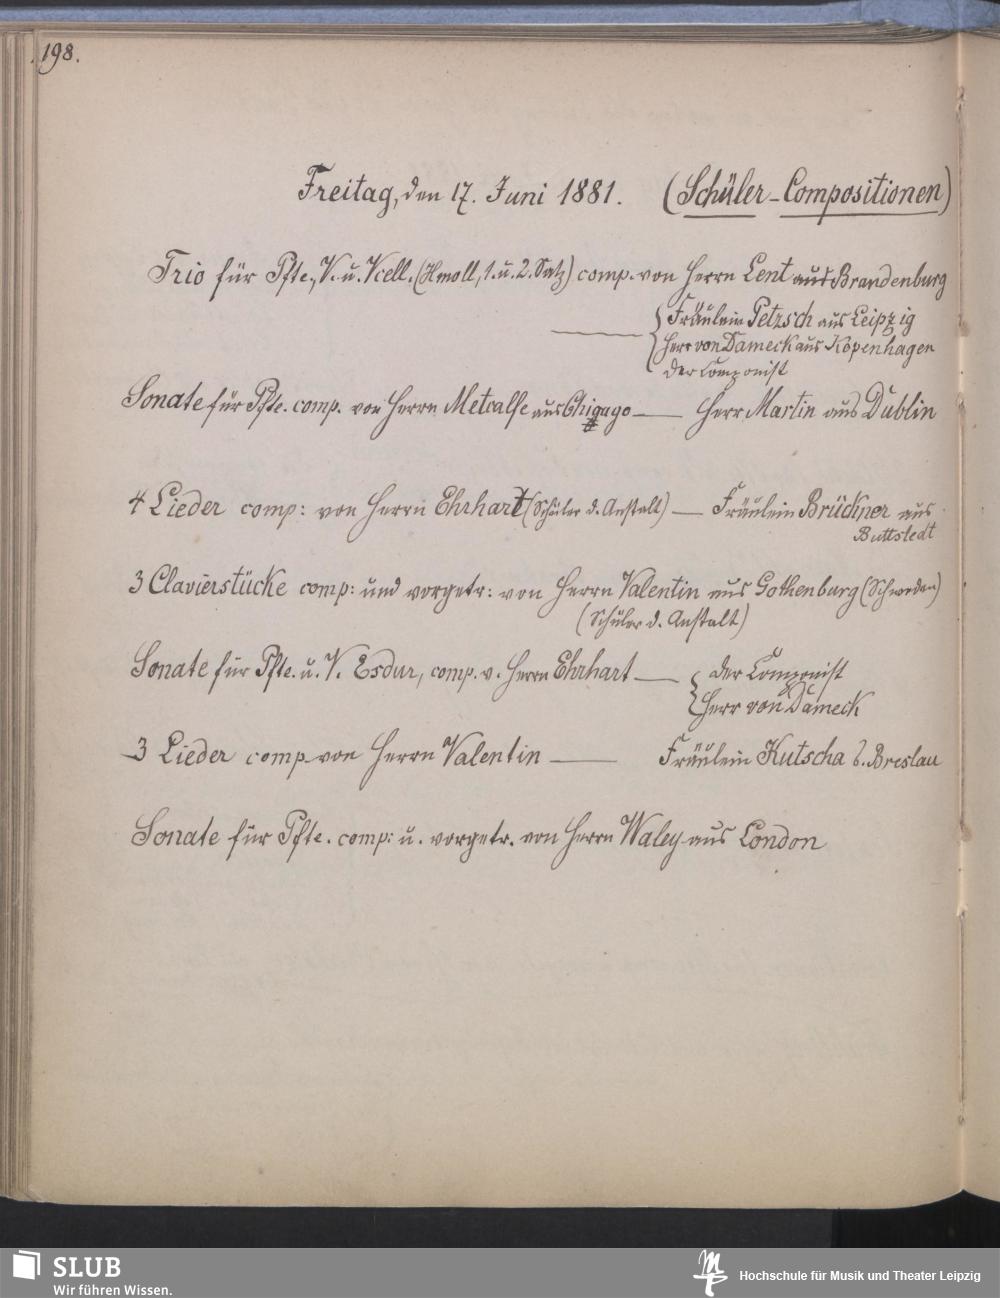 198.
Freitag, den 17. Juni 1881. (Schüler-Compositionen)
Trio für Pfte., V. u. Vcell. (Hmoll, 1. u. 2. Satz) comp. von Herrn Lent aus Brandenburg
Fräulein Petzsch aus Leipzig
Herr von Dameck aus Kopenhagen
der Componist
Sonate für Pfte. comp. von Herrn Metcalfe aus Chigago — Herr Martin aus Dublin
4 Lieder comp: von Herrn Ehrhart (Schüler d. Anstalt) — Fräulein Brückner aus
Buttstedt
3 Clavierstücke comp: und vorgetr: von Herrn Valentin aus Gothenburg (Schweden)
(Schüler d. Anstalt)
Sonate für Pfte. u. V. Esdur, comp. v. Herrn Ehrhart — der Componist
Herr von Dameck
3 Lieder comp von Herrn Valentin — Fräulein Kutscha b. Breslau
Sonate für Pfte. comp: u. vorgetr. von Herrn Waley aus London
SLUB
Wir führen Wissen.
Hochschule für Musik und Theater Leipzig